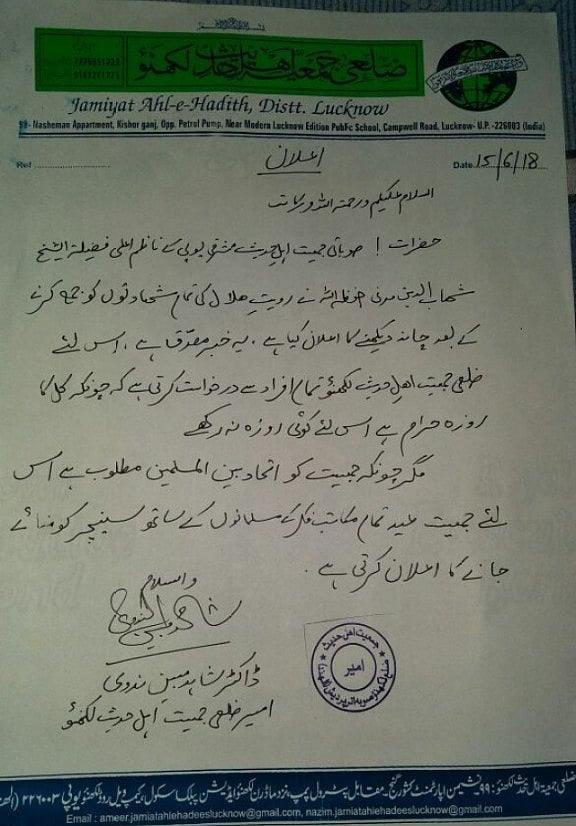 ضلعی جمعیۃ اہل حدیث لکھنؤ
Jamiyat Ahl-e-Hadith, Distt. Lucknow
99- Nasheman Appartment, Kishor ganj, Opp. Petrol Pump, Near Modern Lucknow Edition Public School, Campwell Road, Lucknow- U.P. -226003 (India)
Ref
Date 15/6/18
اعلان
السلام علیکم ورحمۃ اللہ وبرکاتہ
حضرات ! صوبائی جمعیت اہل حدیث مشرقی یوپی کے ناظم اعلی فضیلۃ الشیخ
شہاب الدین مدنی حفظہ اللہ نے رویت ھلال کی تمام شھادتوں کو جمع کرنے
کے بعد چاند دیکھنے کا اعلان کیا ہے ، یہ خبر مصدق ہے ، اس لئے
ضلعی جمعیت اھل حدیث لکھنؤ تمام افراد سے درخواست کرتی ہے کہ چونکہ کل کا
روزہ حرام ہے اس لئے کوئی روزہ نہ رکھے
مگر چونکہ جمعیت کو اتحاد بین المسلمین مطلوب ہے اس
لئے جمعیت عید تمام مکاتب فکر کے مسلمانوں کے ساتھ سنیچر کو منائے
جانے کا اعلان کرتی ہے .
والسلام
ڈاکٹر شاہد مبین ندوی
امیر ضلعی جمعیت اہل حدیث لکھنؤ
جمعیت اهل حدیث
امیر
ضلعی جمعیۃ اہل حدیث لکھنؤ : ۹۹ نشیمن اپارٹمنٹ کشور گنج، مقابل پٹرول پمپ، نزد ماڈرن لکھنؤ ایڈیشن پبلک اسکول، کیمپ ویل روڈ لکھنؤ یوپی ۲۲۶۰۰۳
Email : ameer.jamiatahlehadeeslucknow@gmail.com, nazim.jamiatahlehadeeslucknow@gmail.com